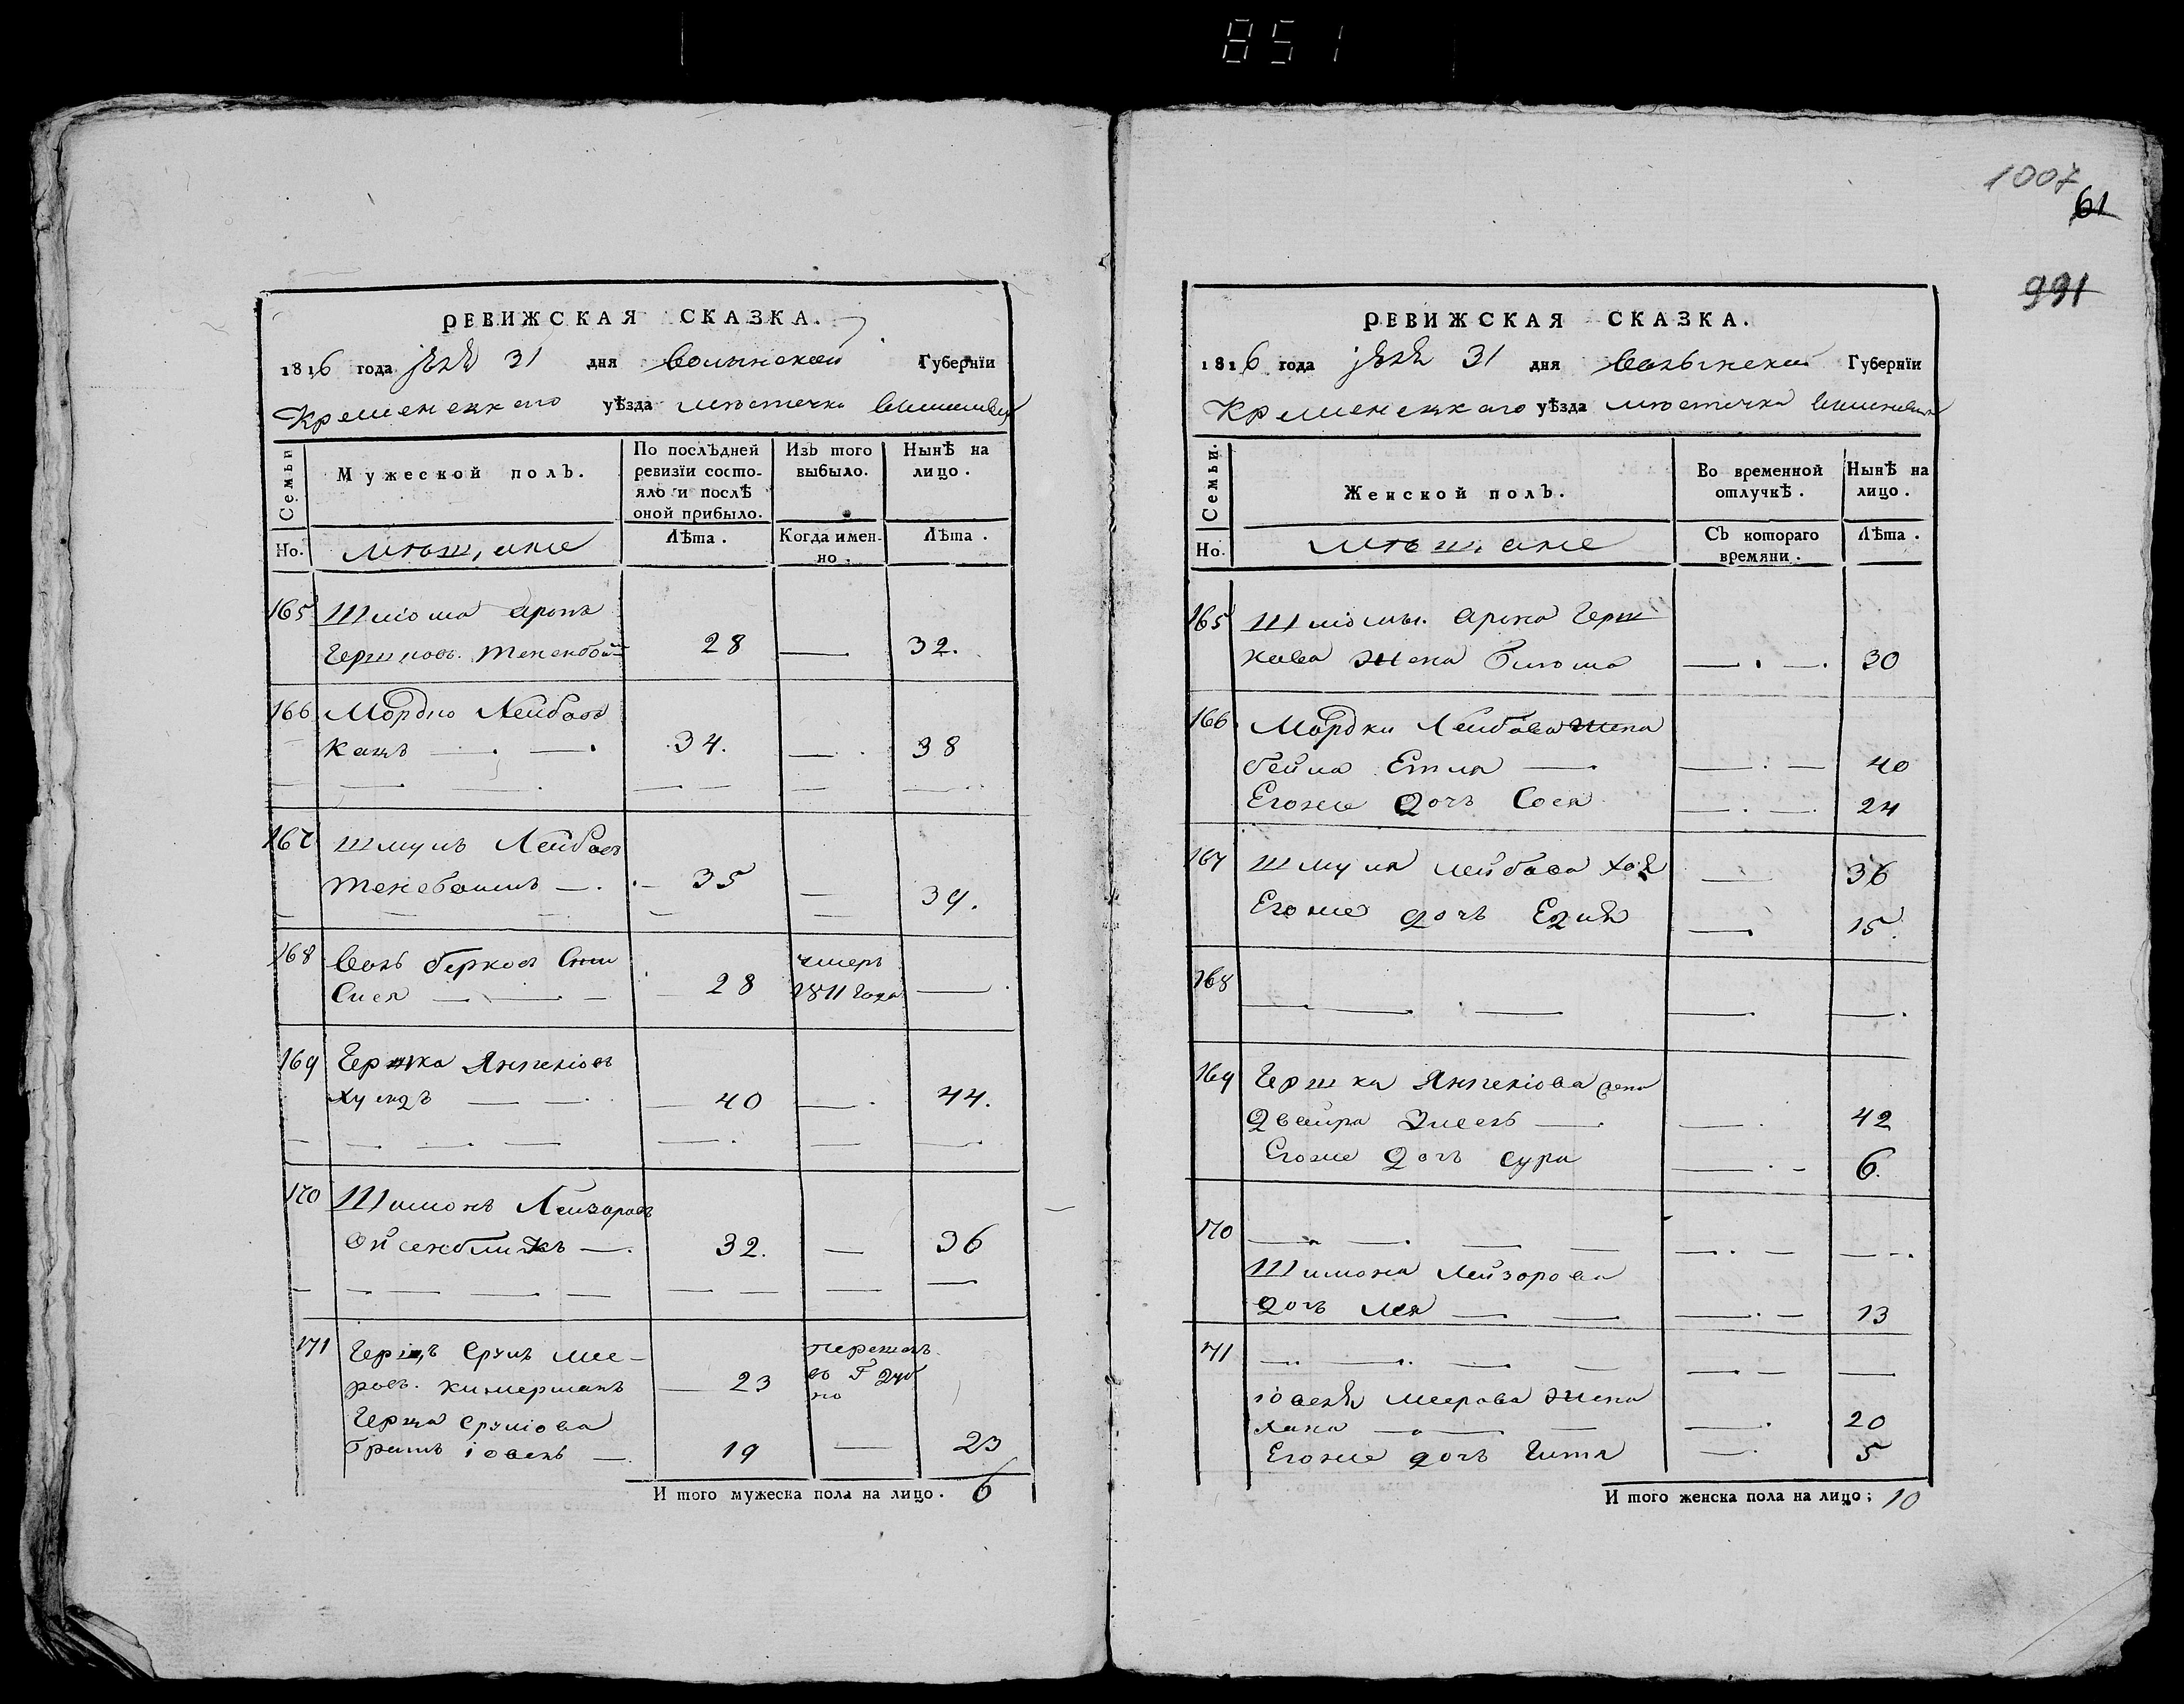 851
1007
61
991
РЕВИЖСКАЯ СКАЗКА.
1816 года 31 дня Волынской Губернїи
Кременецкаго уѣзда мѣстечка
Семьи
Мужеской полъ.
По послѣдней ревизїи состояло и послѣ оной прибыло.
Изъ того выбыло.
Нынѣ на лицо.
Но.
мѣщане
Лѣта.
Когда именно.
Лѣта.
165 Шліома Аронъ
Гершковъ 28 — 32.
166 Мордко Лейбовъ
Кацъ — . — . 34. — . 38
167 Шмуль Лейбовъ
— . 35 — 39.
168 Волъ Берковъ
28 умеръ 1811 года —
169 Гершка Янкеліовъ
— — 40 — . 44.
170 Шимонъ Лейзоровъ
— . 32. — 36
171 Герцъ Сруль Мее-
ровъ Кимерманъ 23 перешолъ въ Г Дубно
Герца Сруліова
братъ Іовель — 19 — 23
И того мужеска пола на лицо. 6
РЕВИЖСКАЯ СКАЗКА.
1816 года 31 дня Волынской Губернїи
Кременецкаго уѣзда мѣстечка
Семьи.
Женской полъ.
Во временной отлучкѣ.
Нынѣ на лицо.
Но.
мѣщане
Съ котораго времяни.
Лѣта.
165 Шліомы Арона Герш
кова жена Блюма — . — . 30
166 Мордки Лейбова жена
Бейла Етля — . — . — 40
Егоже дочь Сося — . — . 24
167 Шмуля Лейбова
— 36
Егоже дочь Едля — 15.
168 — . — — — .
169 Гершки Янкеліова жена
Двейра — — . 42
Егоже дочь Сура — . — 6.
170 — — . — — — . — — .
Шимона Лейзорова
дочь Лея — — — . — 13
171 — . — . — — — . — —
Іовеля Меерова жена
Хана — — — . 20
Егоже дочь Гитля — . 5
И того женска пола на лицо; 10